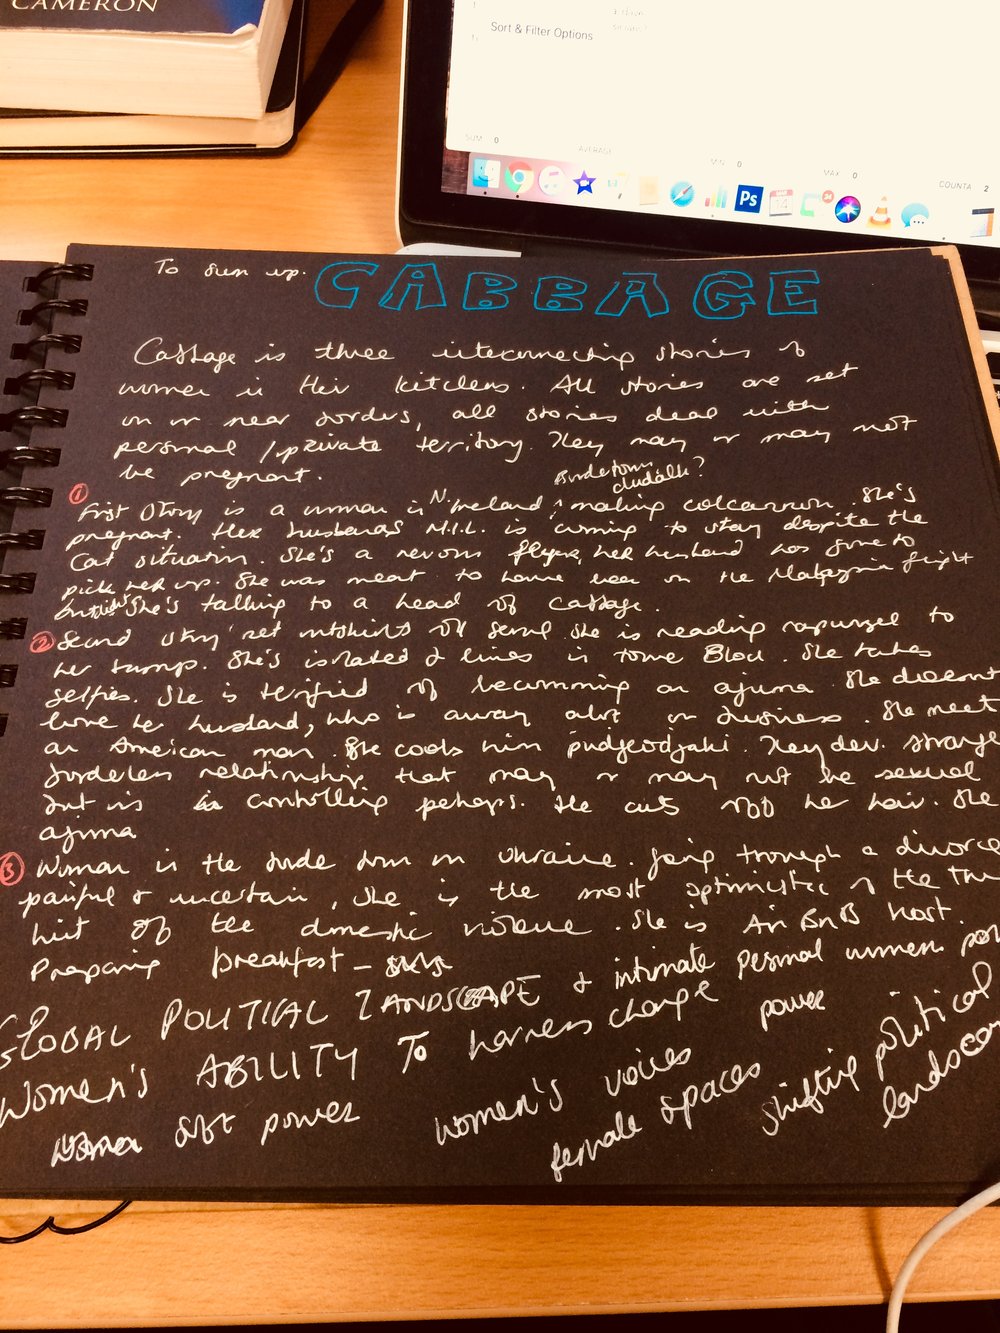 CAMERON
Sort & Filter Options
SUM 0
AVERAGE
MIN 0
MAX 0
COUNTA 2
Ps
To sum up. CABBAGE
Cabbage is three interconnecting stories of
women in their kitchens. All stories are set
on or near borders, all stories deal with
personal / private territory. They may or may not
be pregnant.
Bordertown
dundalk?
① First story is a woman in N. Ireland, making colcannon. She's
pregnant. Her husbands M.I.L. is coming to stay despite the
Cat situation. She's a nervous flyer, her husband has gone to
pick her up. She was meant to have been on the Malaysia flight
but She's talking to a head of cabbage.
② Second story set outskirts of Seoul. She is reading rapunzel to
her bump. She's isolated & lives in tower Block. She takes
selfies. She is terrified of becomming an ajuma. She doesnt
love her husband, who is away alot on business. She meet
an American man. She cooks him pudgeodjaki. They dev. strange
borderless relationship that may or may not be sexual
but is controlling perhaps. He cuts off her hair. She
ajuma
③ Woman in the border town in Ukraine. Going through a divorce
painful & uncertain, she is the most optimistic of the three
hint of the domestic violence. She is Air BnB host.
Preparing breakfast -
GLOBAL POLITICAL LANDSCAPE & intimate personal women
WOMEN'S ABILITY TO harness change power
women soft power women's voices
female spaces
shifting political
landscape